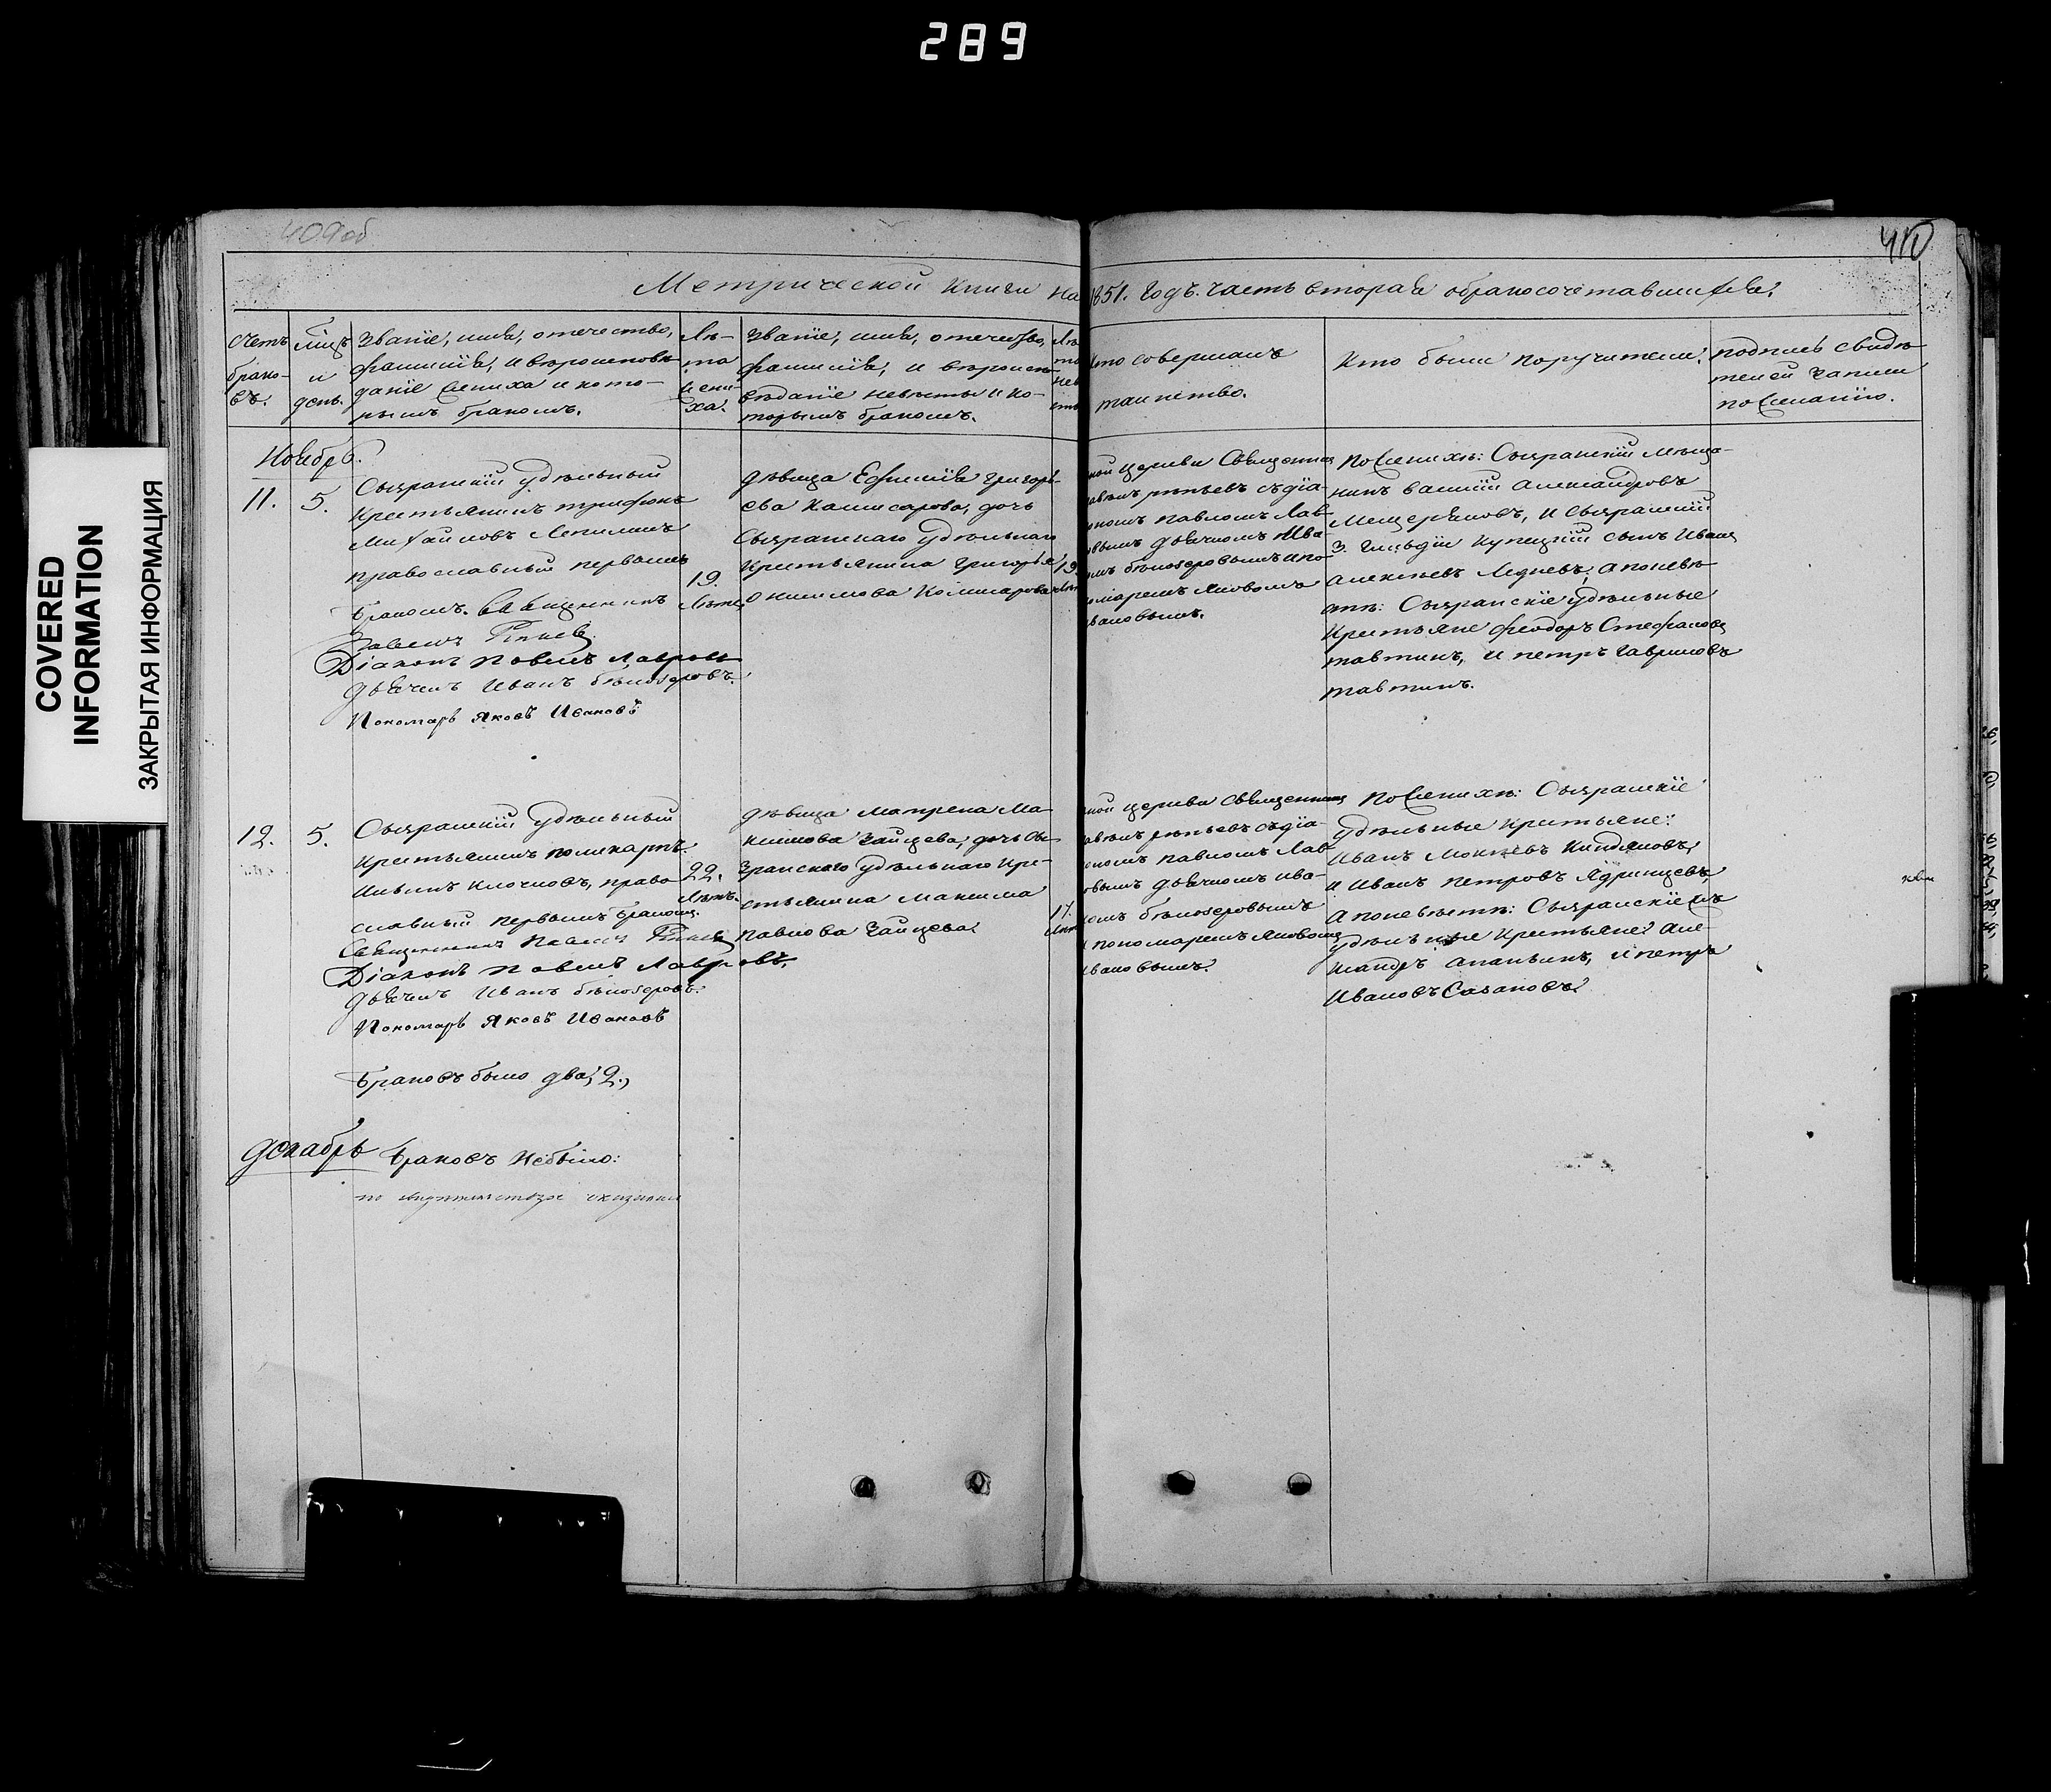 289
COVERED
INFORMATION
ЗАКРЫТАЯ ИНФОРМАЦИЯ
409об
410
Метрической книги на 1851. годъ. часть вторая о бракосочетавшихся.
Счетъ
брако-
въ.
Мѣсяцъ
и
день.
Званіе, имя, отечество,
фамилія, и вѣроисповѣ-
даніе жениха и кото-
рымъ бракомъ.
Лѣ-
та
жени-
ха.
Званіе, имя, отечество,
фамилія, и вѣроиспо-
вѣданіе невѣсты и ко-
торымъ бракомъ.
Лѣ
та
нев
Кто совершалъ
таинство.
Кто были поручители.
подпись свидѣ-
телей записи
по желанію.
Ноябрь.
11. 5.
Сызранскій удѣльный
крестьянинъ трифонъ
Михайловъ Лепилинъ
православный первымъ
бракомъ. Священникъ
Павелъ
Діаконъ Павелъ Лавровъ
Дьячекъ Иванъ бѣлозеровъ.
Пономарь Яковъ Ивановъ
19.
Лѣтъ
дѣвица Ефимія григорь-
ева Камисарова, дочь
Сызранскаго удѣльнаго
крестьянина григорья
Онисимова Комисарова
19
ной церкви Священник
ономъ павломъ Лав-
вымъ дьячкомъ Ива-
мъ бѣлозеровымъ и по-
омаремъ Яковомъ
вановымъ.
По женихѣ: Сызранскій мѣща-
нинъ василій александровъ
Мещеряковъ, и Сызранскій
3. гильдіи купецкій сынъ Иванъ
алексѣевъ Ледневъ, а по невѣ-
стѣ: Сызранскіе удѣльные
крестьяне феодоръ Стефановъ
тавтинъ, и петръ гавриловъ
тавтинъ.
12. 5.
Сызранскій удѣльный
крестьянинъ поликарпъ
Ильинъ клочковъ, право-
славный первымъ бракомъ.
Священникъ Павелъ
Діаконъ Павелъ Лавровъ.
Дьячекъ Иванъ бѣлозеровъ.
Пономарь Яковъ Ивановъ
22.
Лѣтъ.
дѣвица матрена Ма-
ксимова зайцева, дочь Сы-
зранскаго удѣльнаго кре-
стьянина максима
павлова зайцева.
17.
ной церкви Священник
ономъ павломъ Лав-
овымъ дьячкомъ ива-
номъ бѣлозеровымъ
и пономаремъ Яковомъ
Ивановымъ.
По женихѣ: Сызранскіе
удѣльные крестьяне:
Иванъ Мокѣевъ Киндяковъ,
и Иванъ петровъ Ядринцевъ,
а по невѣстѣ: Сызранскіе
удѣльные крестьяне: Але-
ксандръ ананьинъ, и петръ
Ивановъ Сазановъ.
Браковъ было два, 2.,
Декабрь
Браковъ не было: